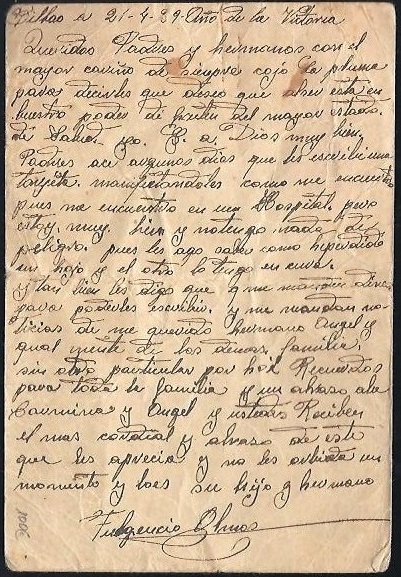 Bilbao a 21-4-39-Año de la Victoria
Queridos Padres y hermanos con el
mayor cariño de siempre cojo la pluma
para decirles que deseo que al ser esta en
buestro poder disfruten del mayor estado
de Salud. yo. G. a. Dios muy bien.
Padres ace argunos dias que les escribi una
targeta. manifestandoles como me encuentro
pues me encuentro en un Hospital. pero
estoy. muy. bien y no tengo nada de
peligro. pues les ago saber como he perdido
un hojo y el otro lo tengo en cura.
y tan bien les digo que me manden dinero
para poderles escribir. y me mandan no-
ticias de me querido hermano Angel y
gual mente de los demas. familia.
sin otro particular por hoi Recuerdos
para toda la familia y un abrazo a la
Carmina y Angel y ustedes Reciben
el mas cordial y abrazo de este
que les aprecia y no les orbida un
momento y loes su hijo y hermano
Fulgencio Olmos
3001